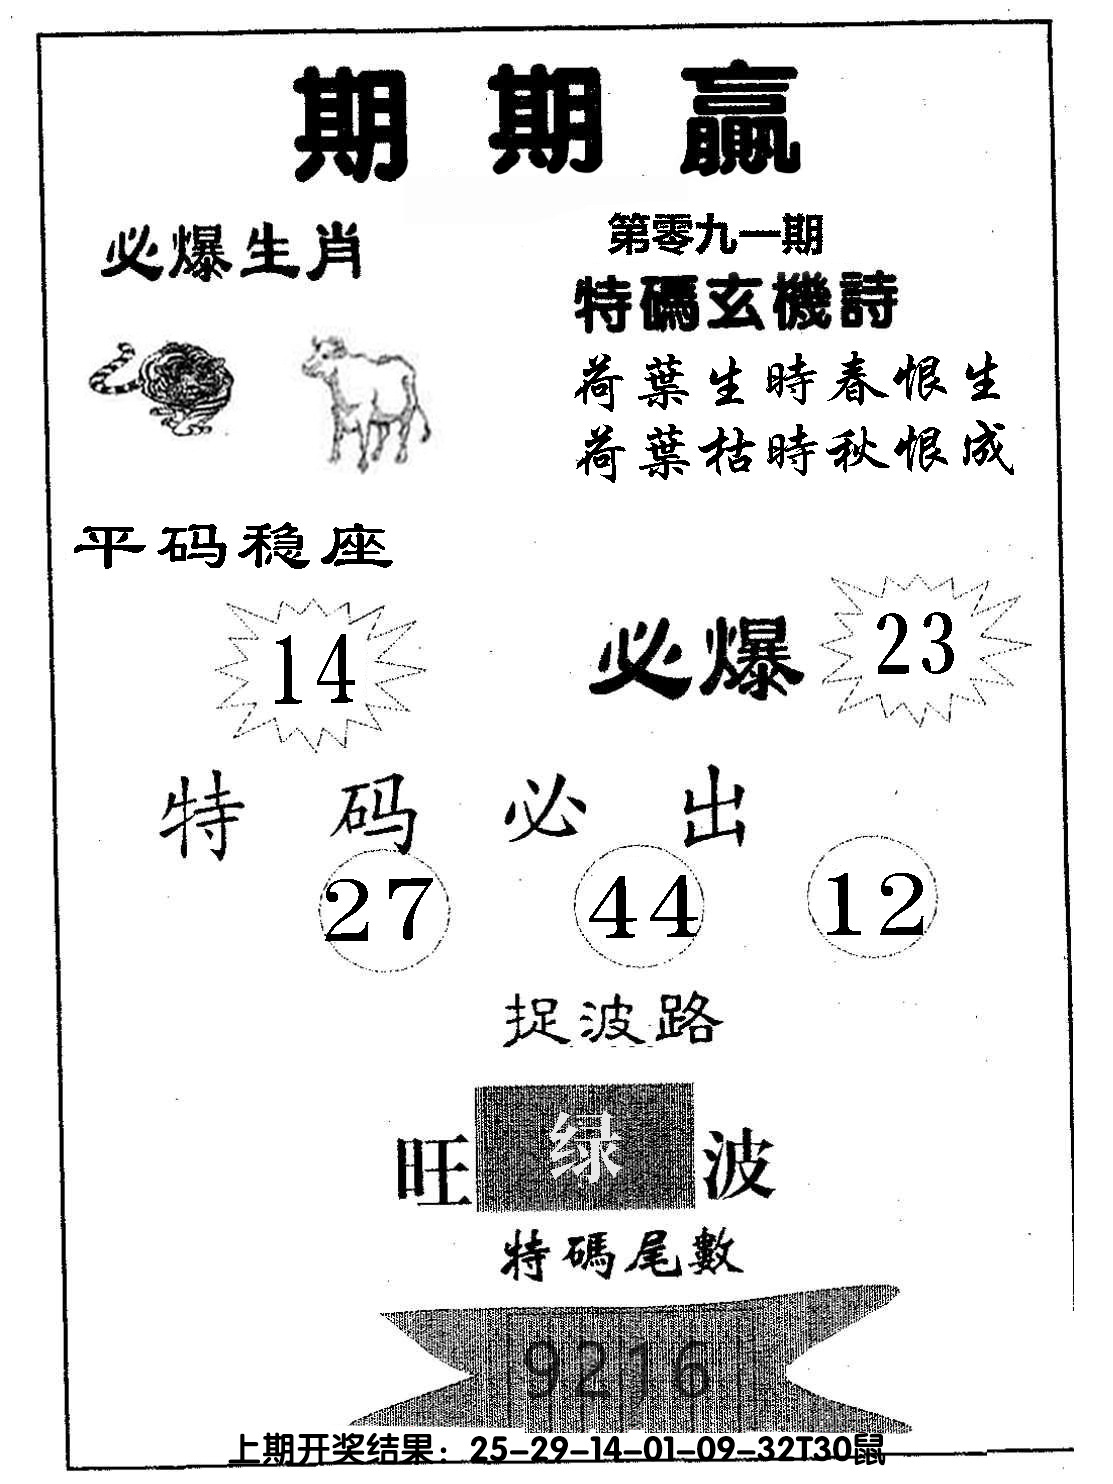 期期赢
必爆生肖
第零九一期
特碼玄機詩
荷葉生時春恨生
荷葉枯時秋恨成
平码稳座
14
必爆
23
特码必出
27 44 12
捉波路
旺 绿 波
特碼尾數
9216
上期开奖结果：25-29-14-01-09-32T30鼠